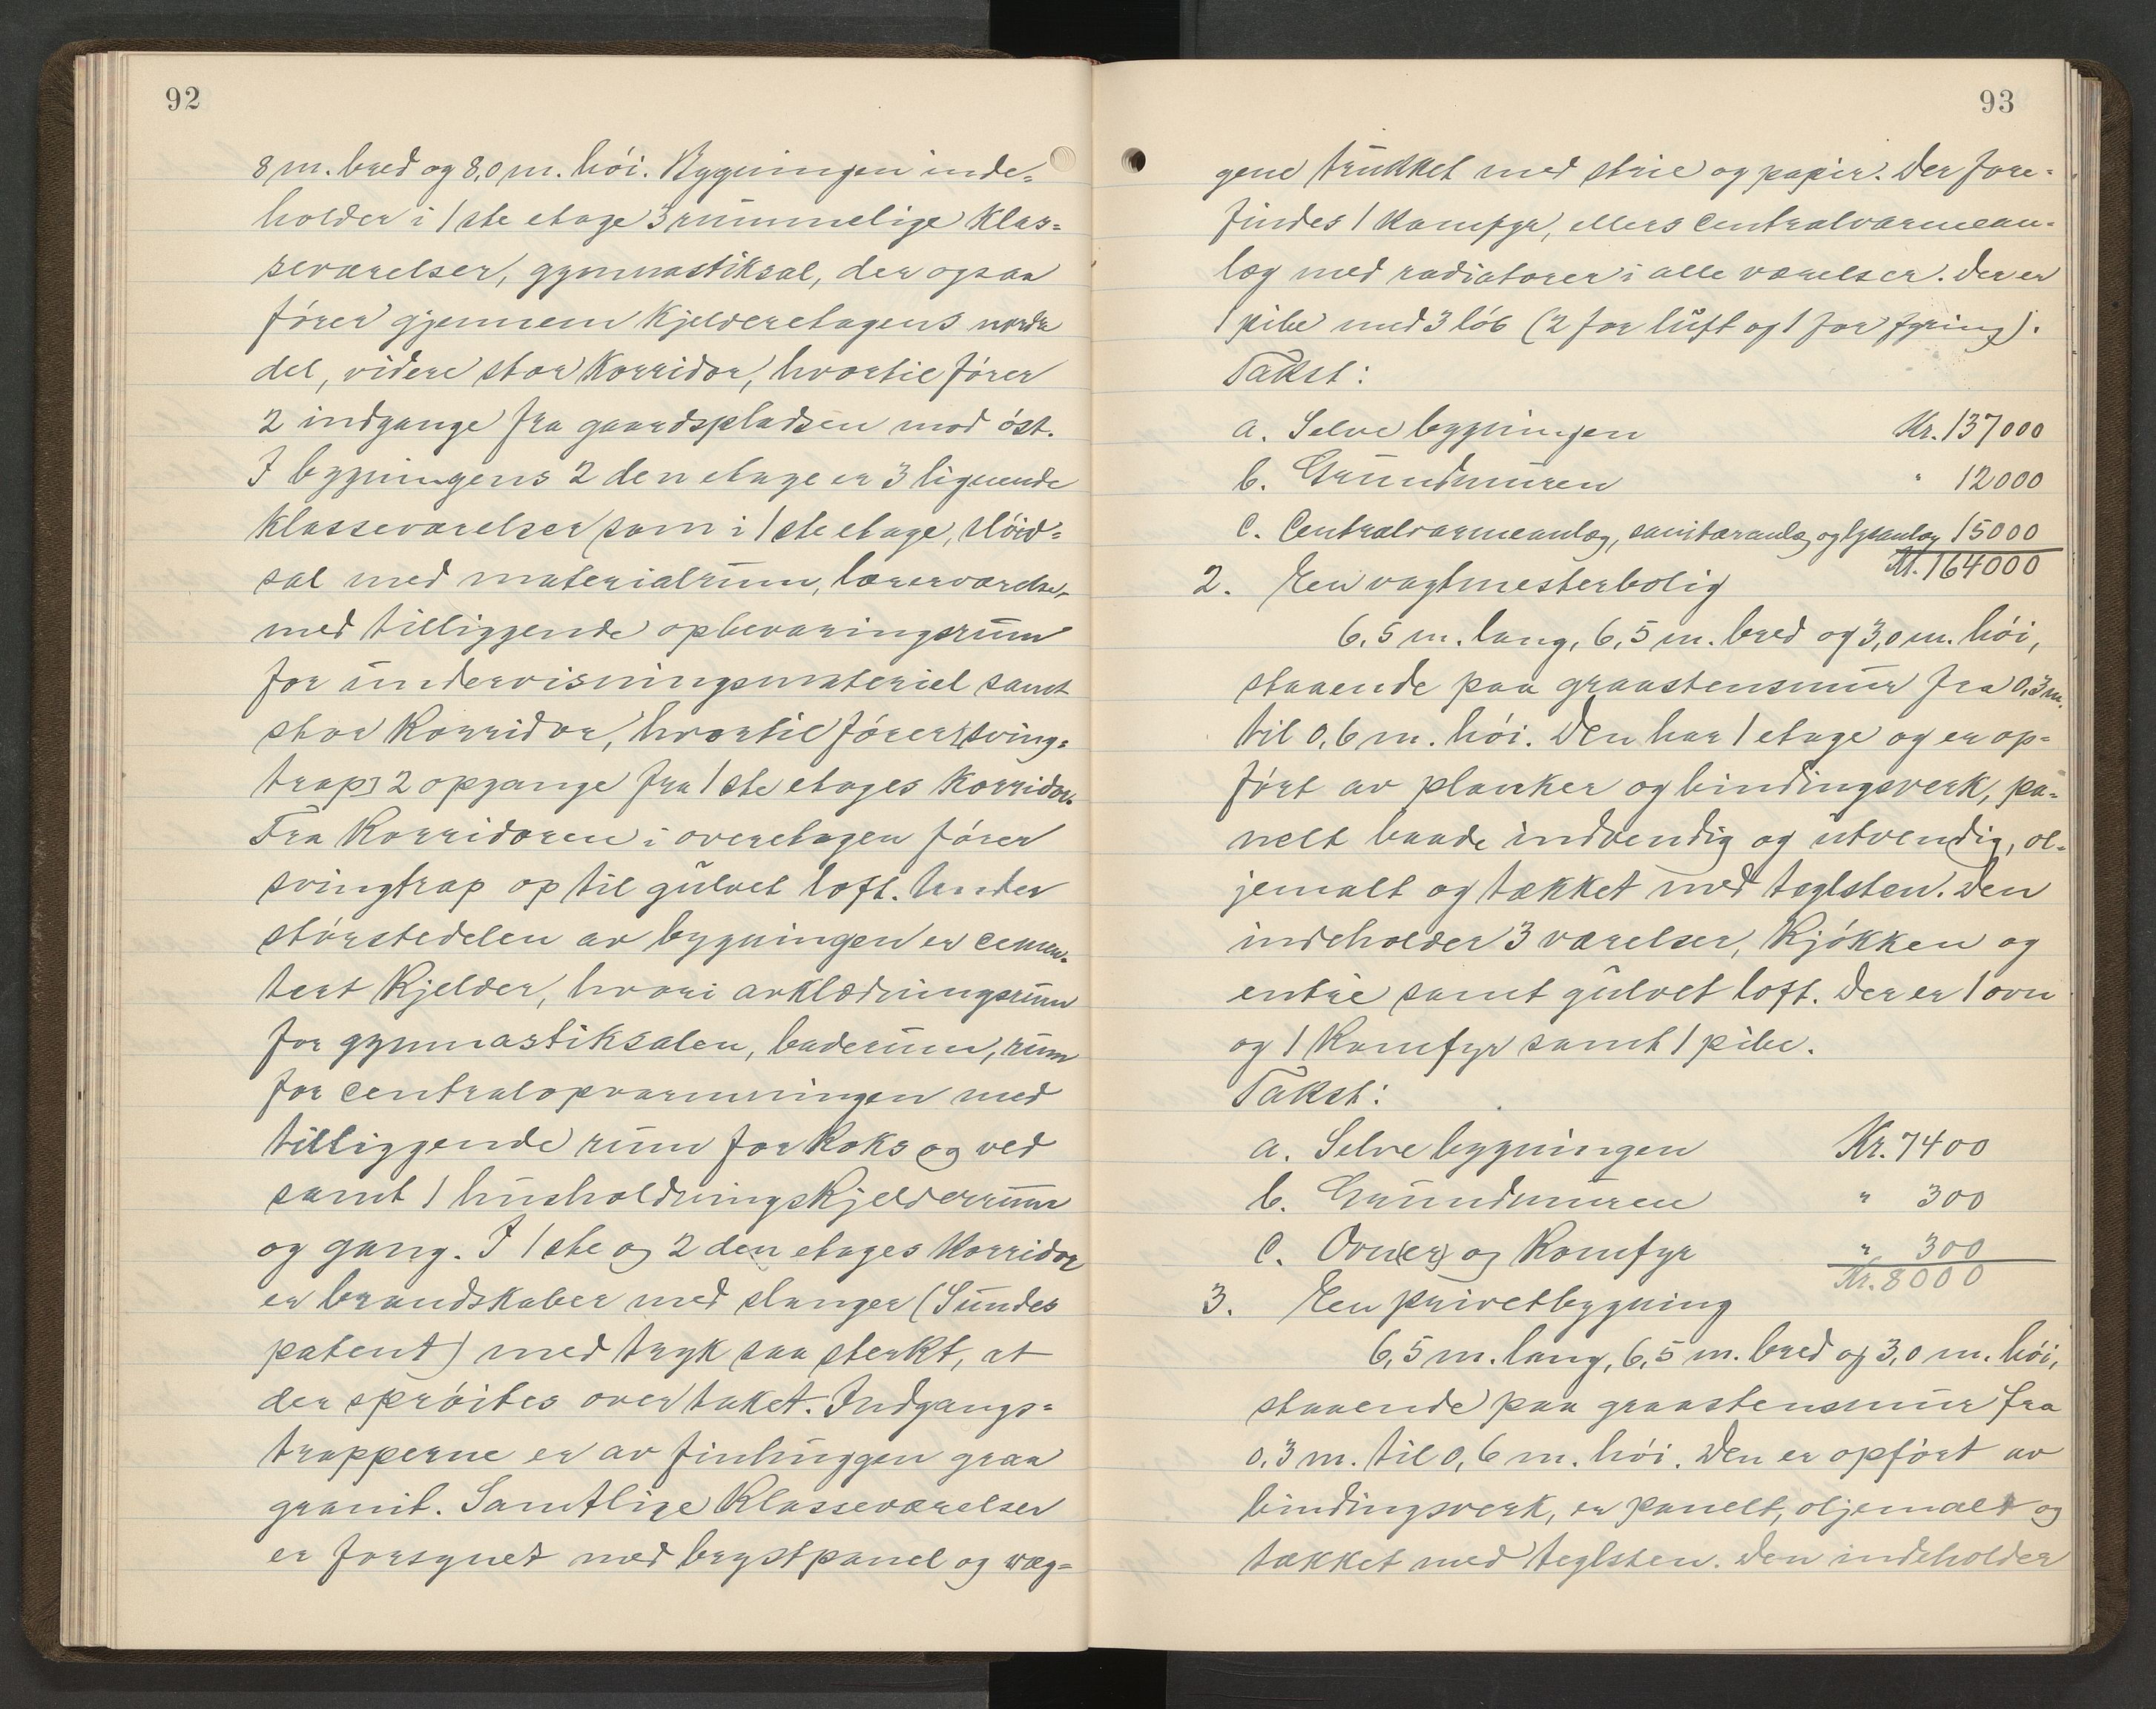 92
8 m. bred og 8,0 m. høi. Bygningen inde=
holder i 1ste etage 3 rummelige klas=
seværelser, gymnastiksal, der ogsaa
fører gjennem kjelderetagens nordre
del, videre stor korridor, hvortil fører
2 indgange fra gaardspladsen mod øst.
I bygningens 2den etage er 3 lignende
klasseværelser som i 1ste etage, sløid=
sal med materialrum, lærerværelse,
med tilliggende opbevaringsrum
for undervisningsmateriel samt
stor korridor, hvortil fører (sving=
trap) 2 opgange fra 1ste etages korridor.
Fra korridoren i overetagen fører
svingtrap op til gulvet loft. Under
størstedelen av bygningen er cemen=
tert kjelder, hvori avklædningsrum
for gymnastiksalen, baderum, rum
for centralopvarmningen med
tilliggende rum for koks og ved
samt 1 husholdningskjelderrum
og gang. I 1ste og 2den etages korridor
er brandskaber med slanger (Sundes
patent) med tryk saa sterkt, at
der sprøites over taket. Indgangs=
trapperne er av finhuggen graa
granit. Samtlige klasseværelser
er forsynet med brystpanel og væg=
93
gene trukket med strie og papir. Der fore=
findes 1 komfyr, ellers centralvarmean=
læg med radiatorer i alle værelser. Der er
1 pibe med 3 løb (2 for luft og 1 for fyring).
Takst:
a. Selve bygningen Kr. 137000
b. Grundmuren " 12000
c. Centralvarmeanlæg, sanitæranlæg og lysanlæg 15000
Kr. 164000
2. En vagtmesterbolig
6,5 m. lang, 6,5 m. bred og 3,0 m. høi,
staaende paa graastensmur fra 0,3 m.
til 0,6 m. høi. Den har 1 etage og er op=
ført av planker og bindingsverk, pa=
nelt baade indvendig og utvendig, ol=
jemalt og tækket med teglsten. Den
indeholder 3 værelser, kjøkken og
entré samt gulvet loft. Der er 1 ovn
og 1 komfyr samt 1 pibe.
Takst:
a. Selve bygningen Kr. 7400
b. Grundmuren " 300
c. Ovn(er) og komfyr " 300
Kr. 8000
3. En privetbygning
6,5 m. lang, 6,5 m. bred og 3,0 m. høi,
staaende paa graastensmur fra
0,3 m. til 0,6 m. høi. Den er opført av
bindingsverk, er panelt, oljemalt og
tækket med teglsten. Den indeholder